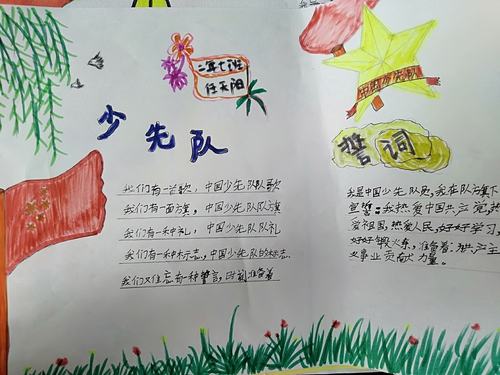 二年七班
任天阳
中国少先队
少先队
誓词
我们有一首歌，中国少先队队歌
我们有一面方旗，中国少先队队旗
我们有一种礼，中国少先队队礼
我们有一种标志，中国少先队的标志
我们又难忘有一种誓言，时刻准备着
我是中国少先队员，我在队旗下
宣誓：我热爱中国共产党，热
爱祖国，热爱人民，好好学习，
好好锻火东，准备着：为共产主
义事业贡献力量。